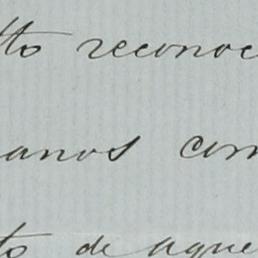 tto reconoc
anos com
to de aque